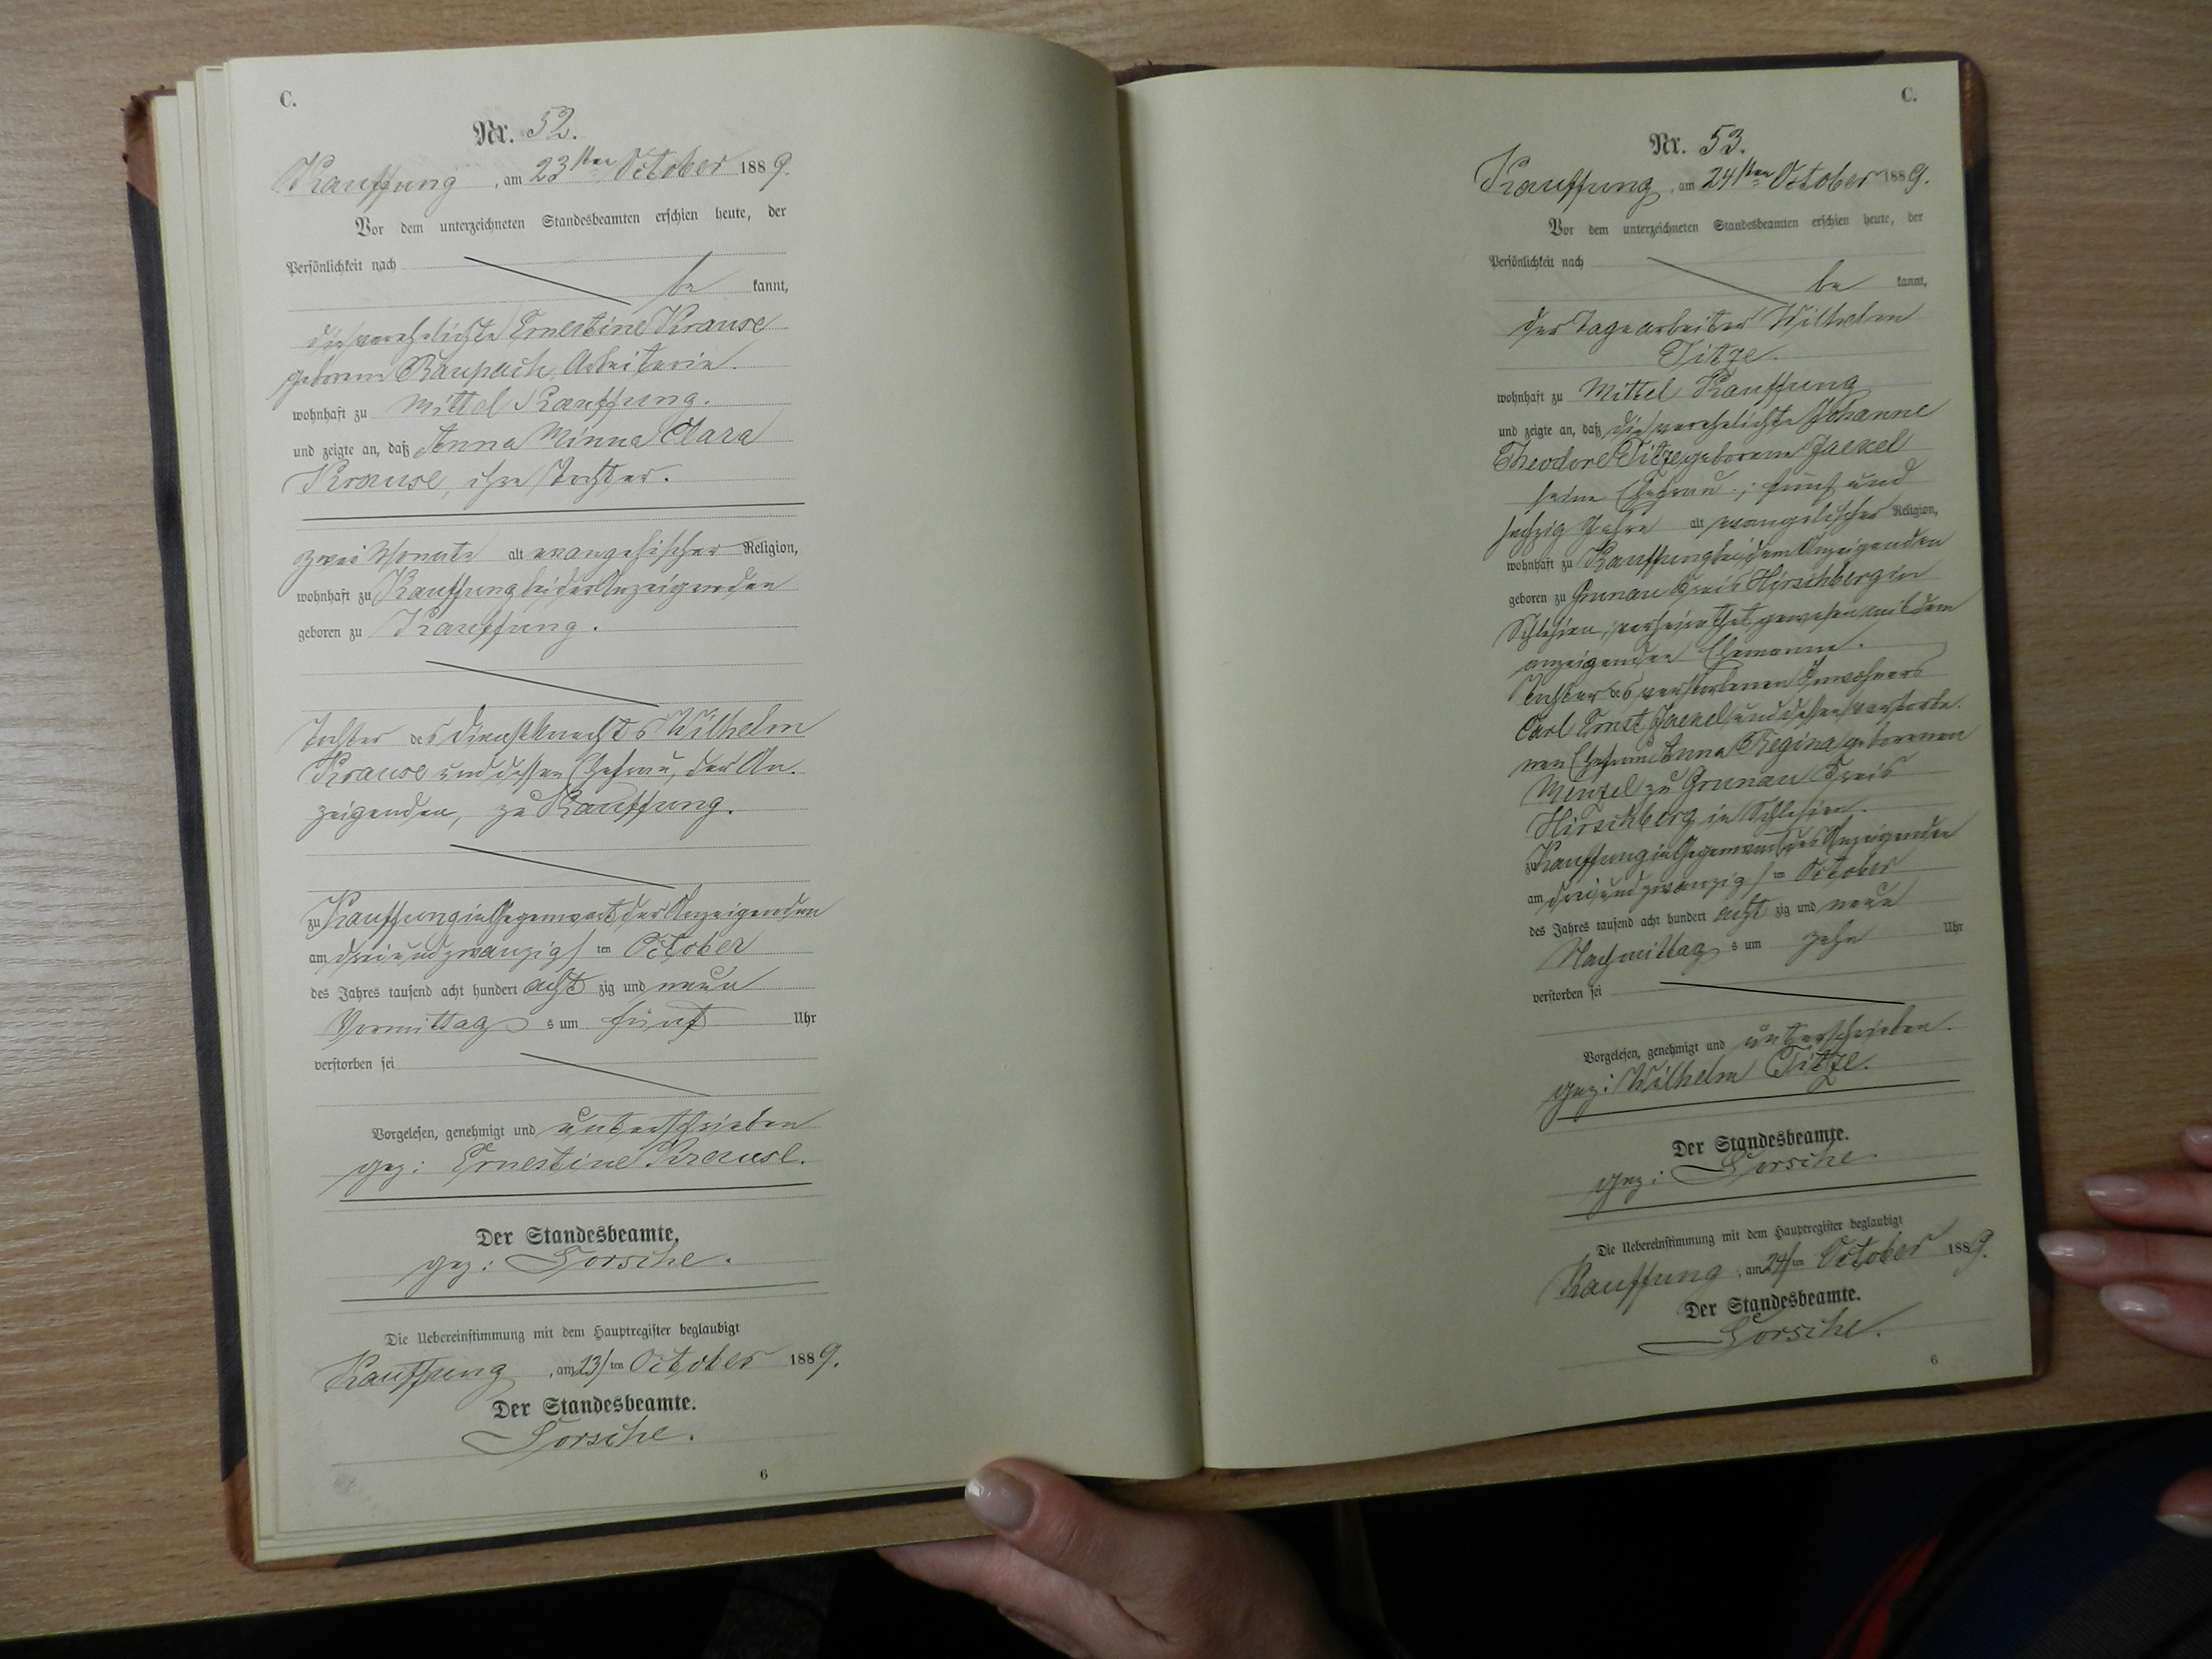 C.
Nr. 52.
Kauffung, am 23sten October 1889.
Vor dem unterzeichneten Standesbeamten erschien heute, der
Persönlichkeit nach
be kannt,
die verehelichte Ernestine Krause
geborene Raupach, Arbeiterin.
wohnhaft zu Mittel Kauffung.
und zeigte an, daß Anna Minna Clara
Krause, ihre Tochter.
zwei Monate alt evangelischer Religion,
wohnhaft zu Kauffung bei der Anzeigenden
geboren zu Kauffung.
Tochter des Dienstknechts Wilhelm
Krause und dessen Ehefrau, der An-
zeigenden, zu Kauffung.
zu Kauffung in Gegenwart der Anzeigenden
am dreiundzwanzigsten October
des Jahres tausend acht hundert acht zig und neun
Vormittag s um fünf Uhr
verstorben sei
Vorgelesen, genehmigt und unterschrieben
gez: Ernestine Krause.
Der Standesbeamte.
gez: Sorsche.
Die Uebereinstimmung mit dem Hauptregister beglaubigt
Kauffung, am 23sten October 1889.
Der Standesbeamte.
Sorsche.
6
C.
Nr. 53.
Kauffung, am 24sten October 1889.
Vor dem unterzeichneten Standesbeamten erschien heute, der
Persönlichkeit nach
be kannt,
der Tagearbeiter Wilhelm
Titze.
wohnhaft zu Mittel Kauffung
und zeigte an, daß die verehelichte Johanne
Theodore Titze geborene Jaekel
seine Ehefrau.; fünf und
sechzig Jahre alt evangelischer Religion,
wohnhaft zu Kauffung bei dem Anzeigenden
geboren zu Grunau Kreis Hirschberg in
Schlesien, verheirathet gewesen mit dem
anzeigenden Ehemanne.
Tochter des verstorbenen Inwohners
Carl Ernst Jaekel und dessen verstorbe-
nen Ehefrau Anna Regina geborenen
Menzel zu Grunau Kreis
Hirschberg in Schlesien.
zu Kauffung in Gegenwart des Anzeigenden
am dreiundzwanzigsten October
des Jahres tausend acht hundert acht zig und neun
Nachmittag s um zehn Uhr
verstorben sei
Vorgelesen, genehmigt und unterschrieben.
gez: Wilhelm Titze.
Der Standesbeamte.
gez: Sorsche.
Die Uebereinstimmung mit dem Hauptregister beglaubigt
Kauffung, am 24sten October 1889.
Der Standesbeamte.
Sorsche.
6